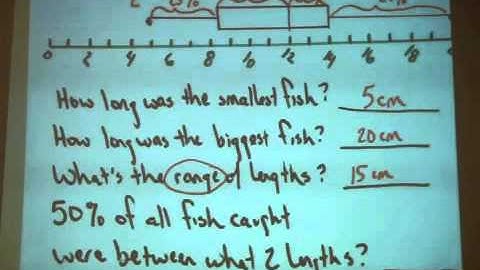 0 2 4 6 8 10 12 14 16 18
How long was the smallest fish? 5cm
How long was the biggest fish? 20cm
What's the range of lengths? 15cm
50% of all fish caught
were between what 2 lengths?